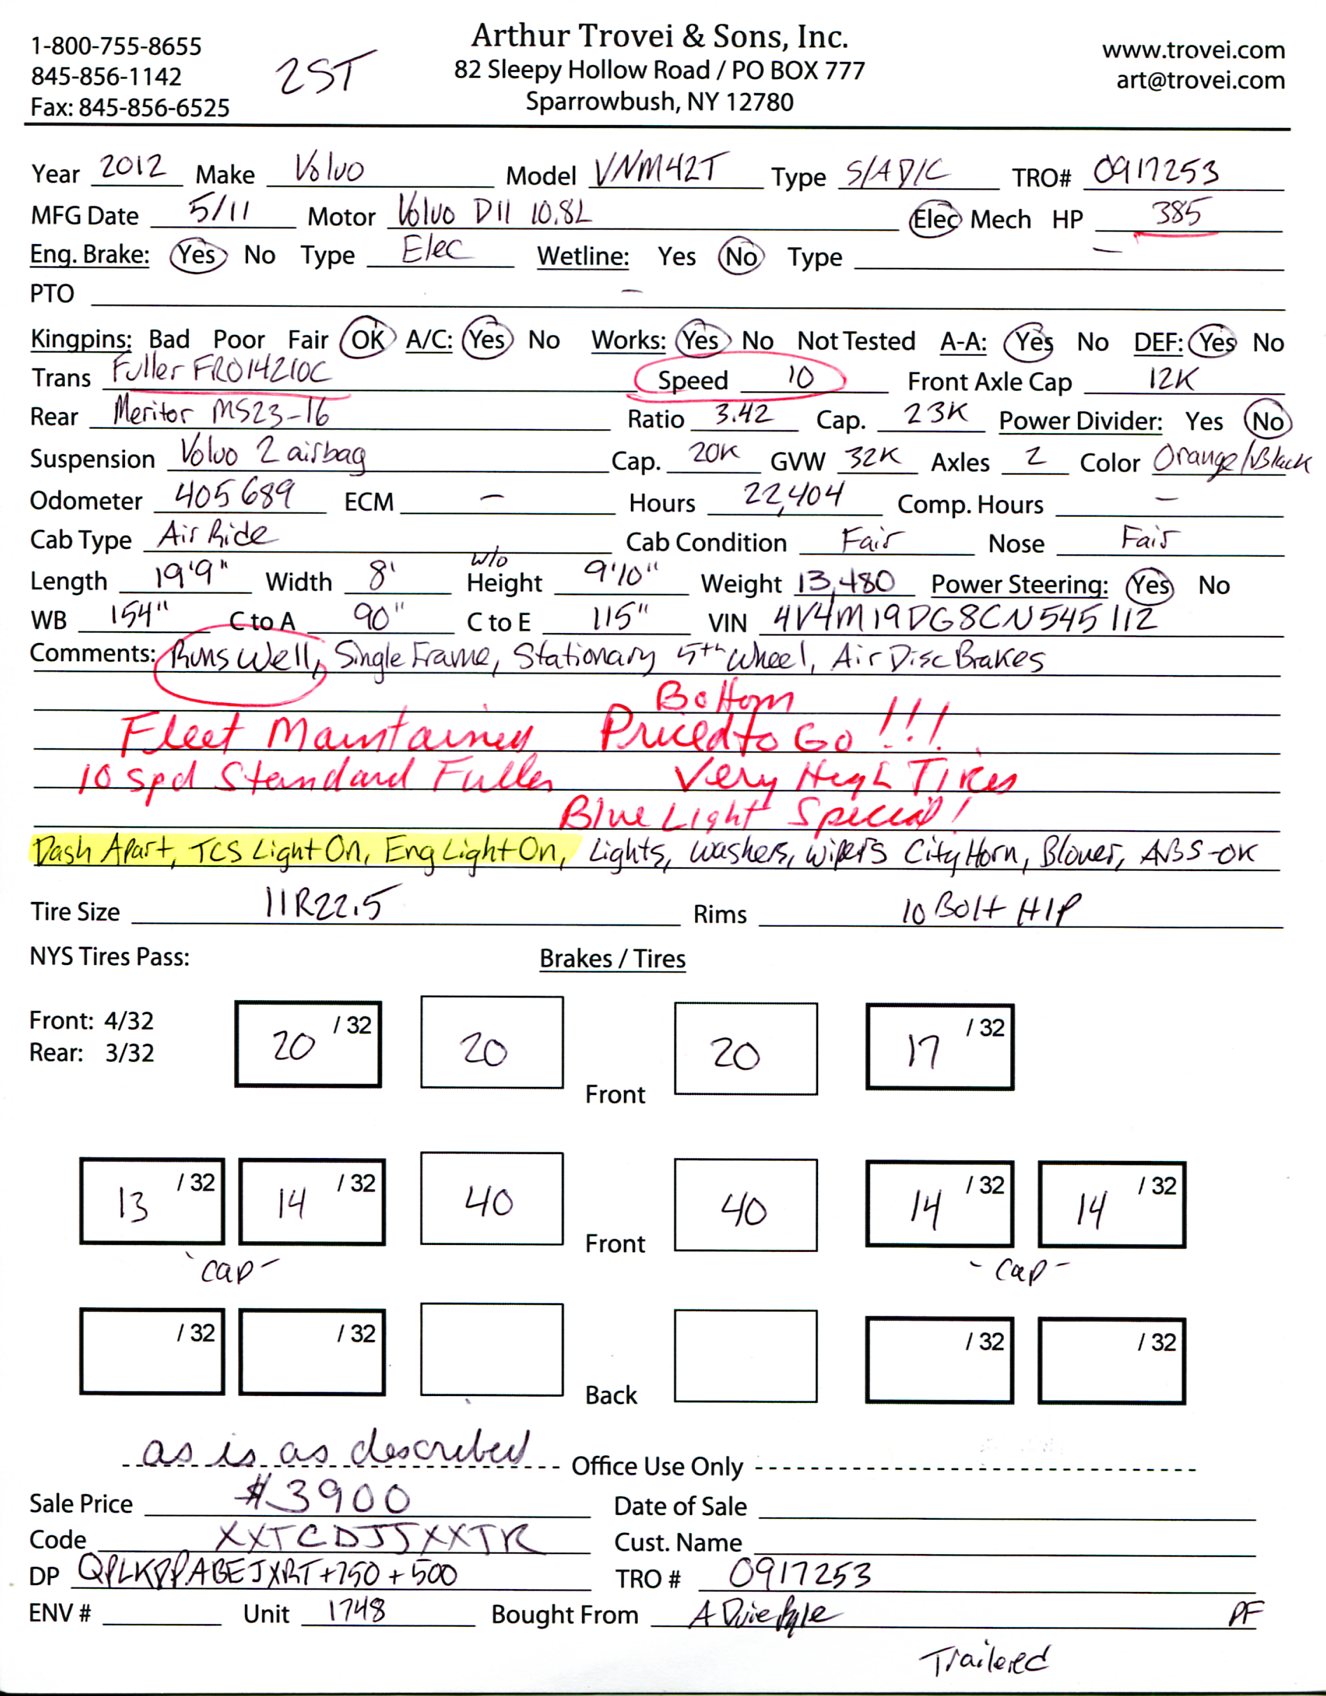 1-800-755-8655
845-856-1142
Fax: 845-856-6525
2ST
Arthur Trovei & Sons, Inc.
82 Sleepy Hollow Road / PO BOX 777
Sparrowbush, NY 12780
www.trovei.com
art@trovei.com
Year 2012 Make Volvo Model VNM42T Type S/AD/C TRO# 0917253
MFG Date 5/11 Motor Volvo D11 10.8L Elec Mech HP 385
Eng. Brake: Yes No Type Elec Wetline: Yes No Type —
PTO —
Kingpins: Bad Poor Fair OK A/C: Yes No Works: Yes No Not Tested A-A: Yes No DEF: Yes No
Trans Fuller FRO14210C Speed 10 Front Axle Cap 12K
Rear Meritor MS23-16 Ratio 3.42 Cap. 23K Power Divider: Yes No
Suspension Volvo 2 airbag Cap. 20K GVW 32K Axles 2 Color Orange/Black
Odometer 405689 ECM — Hours 22,404 Comp. Hours —
Cab Type Air Ride Cab Condition Fair Nose Fair
Length 19'9" Width 8' w/o Height 9'10" Weight 13,480 Power Steering: Yes No
WB 154" C to A 90" C to E 115" VIN 4V4M19DG8CN545112
Comments: Runs Well, Single Frame, Stationary 5th Wheel, Air Disc Brakes
Bottom
Fleet Maintained Priced to Go!!!
10 spd Standard Fuller Very High Tires
Blue Light Special!
Dash Apart, TCS Light On, Eng Light On, Lights, Washers, Wipers City Horn, Blower, ABS-OK
Tire Size 11R22.5 Rims 10 Bolt HIP
NYS Tires Pass: Brakes / Tires
Front: 4/32
Rear: 3/32
20 /32 20 Front 20 17 /32
13 /32 14 /32 40 Front 40 14 /32 14 /32
-cap- -cap-
/32 /32 Back /32 /32
as is as described Office Use Only
Sale Price $3900 Date of Sale
Code XXTCDJJXXTR Cust. Name
DP QPLKPPABEJXRT+750+500 TRO # 0917253
ENV # Unit 1748 Bought From A Duie Pyle PF
Trailered